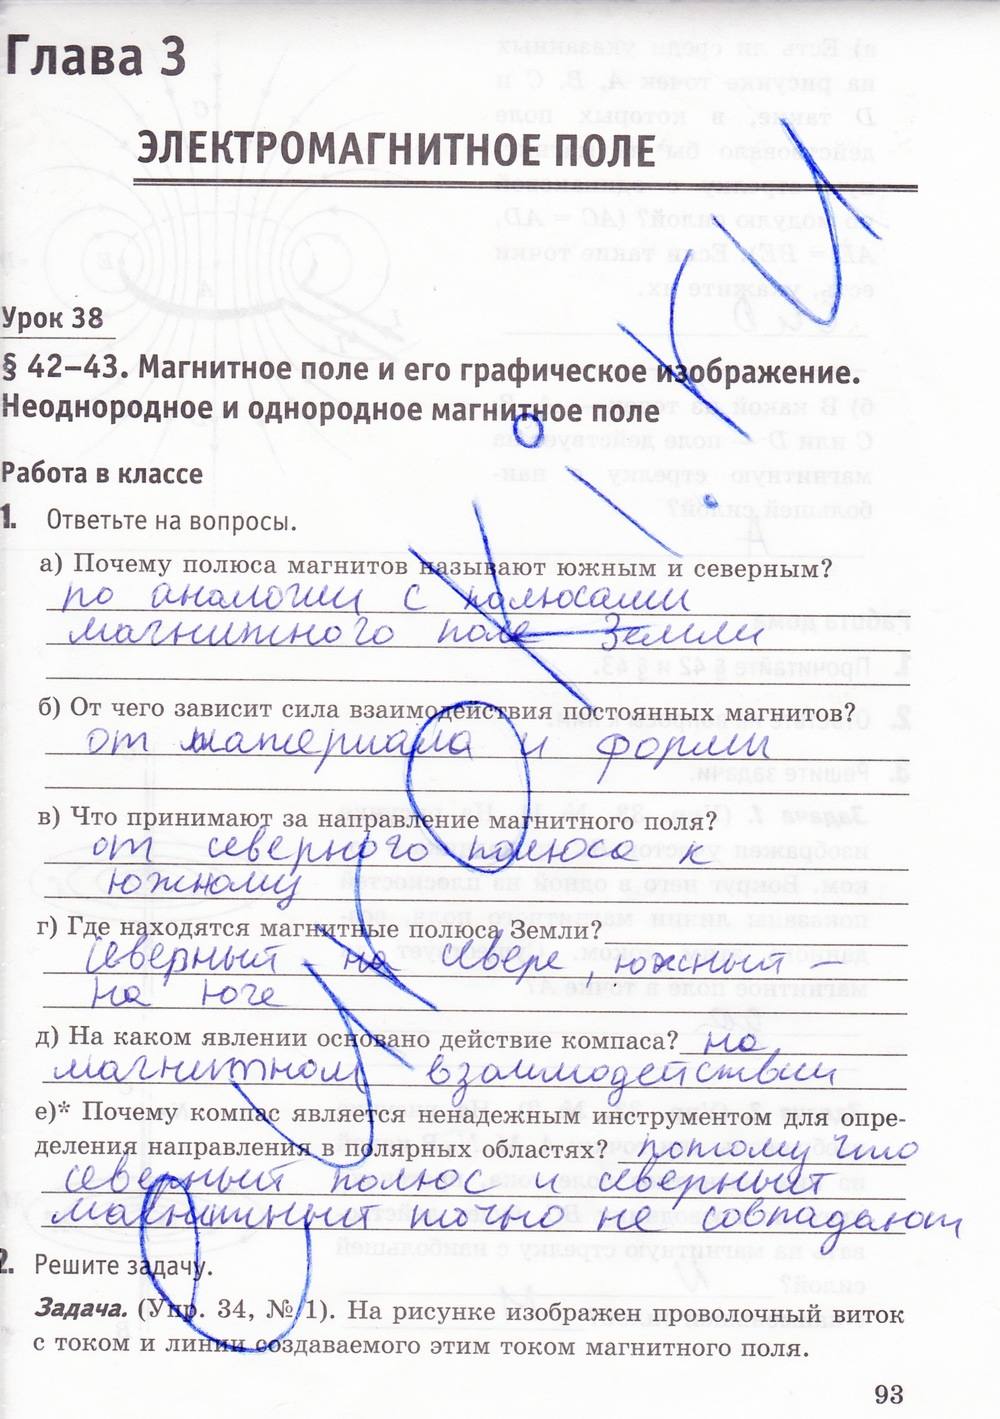 Глава 3
ЭЛЕКТРОМАГНИТНОЕ ПОЛЕ
Урок 38
§ 42–43. Магнитное поле и его графическое изображение.
Неоднородное и однородное магнитное поле
Работа в классе
1. Ответьте на вопросы.
а) Почему полюса магнитов называют южным и северным?
по аналогии с полюсами
магнитного поле Земли
б) От чего зависит сила взаимодействия постоянных магнитов?
от материала и формы
в) Что принимают за направление магнитного поля?
от северного полюса к
южному
г) Где находятся магнитные полюса Земли?
северный на севере, южный –
на юге
д) На каком явлении основано действие компаса? на
магнитном взаимодействии
е)* Почему компас является ненадежным инструментом для опре-
деления направления в полярных областях? потому что
северный полюс и северный
магнитный полюс не совпадают
2. Решите задачу.
Задача. (Упр. 34, № 1). На рисунке изображен проволочный виток
с током и линии создаваемого этим током магнитного поля.
93